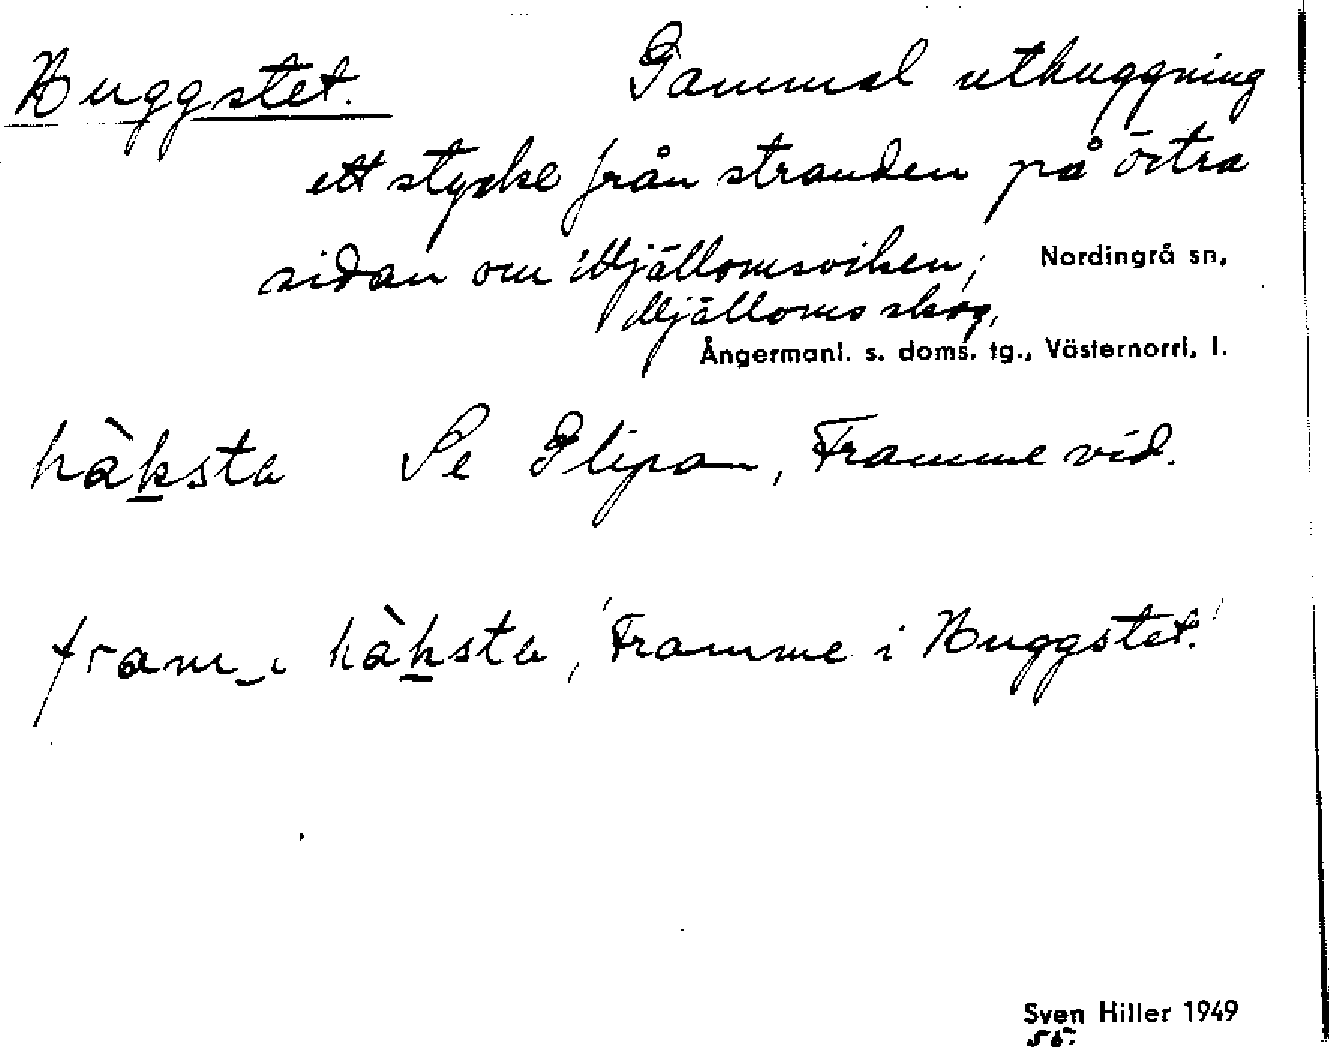 Huggstet. Gammal uthuggning
ett stycke från stranden på östra
sidan om Mjällomsviken; Nordingrå sn,
Mjälloms skog,
Ångermanl. s. doms. tg., Västernorrl. l.
hàksta Se Glipan, Framme vid.
fram_ı hàksta, 'Framme i Huggstet.'
Sven Hiller 1949
55.